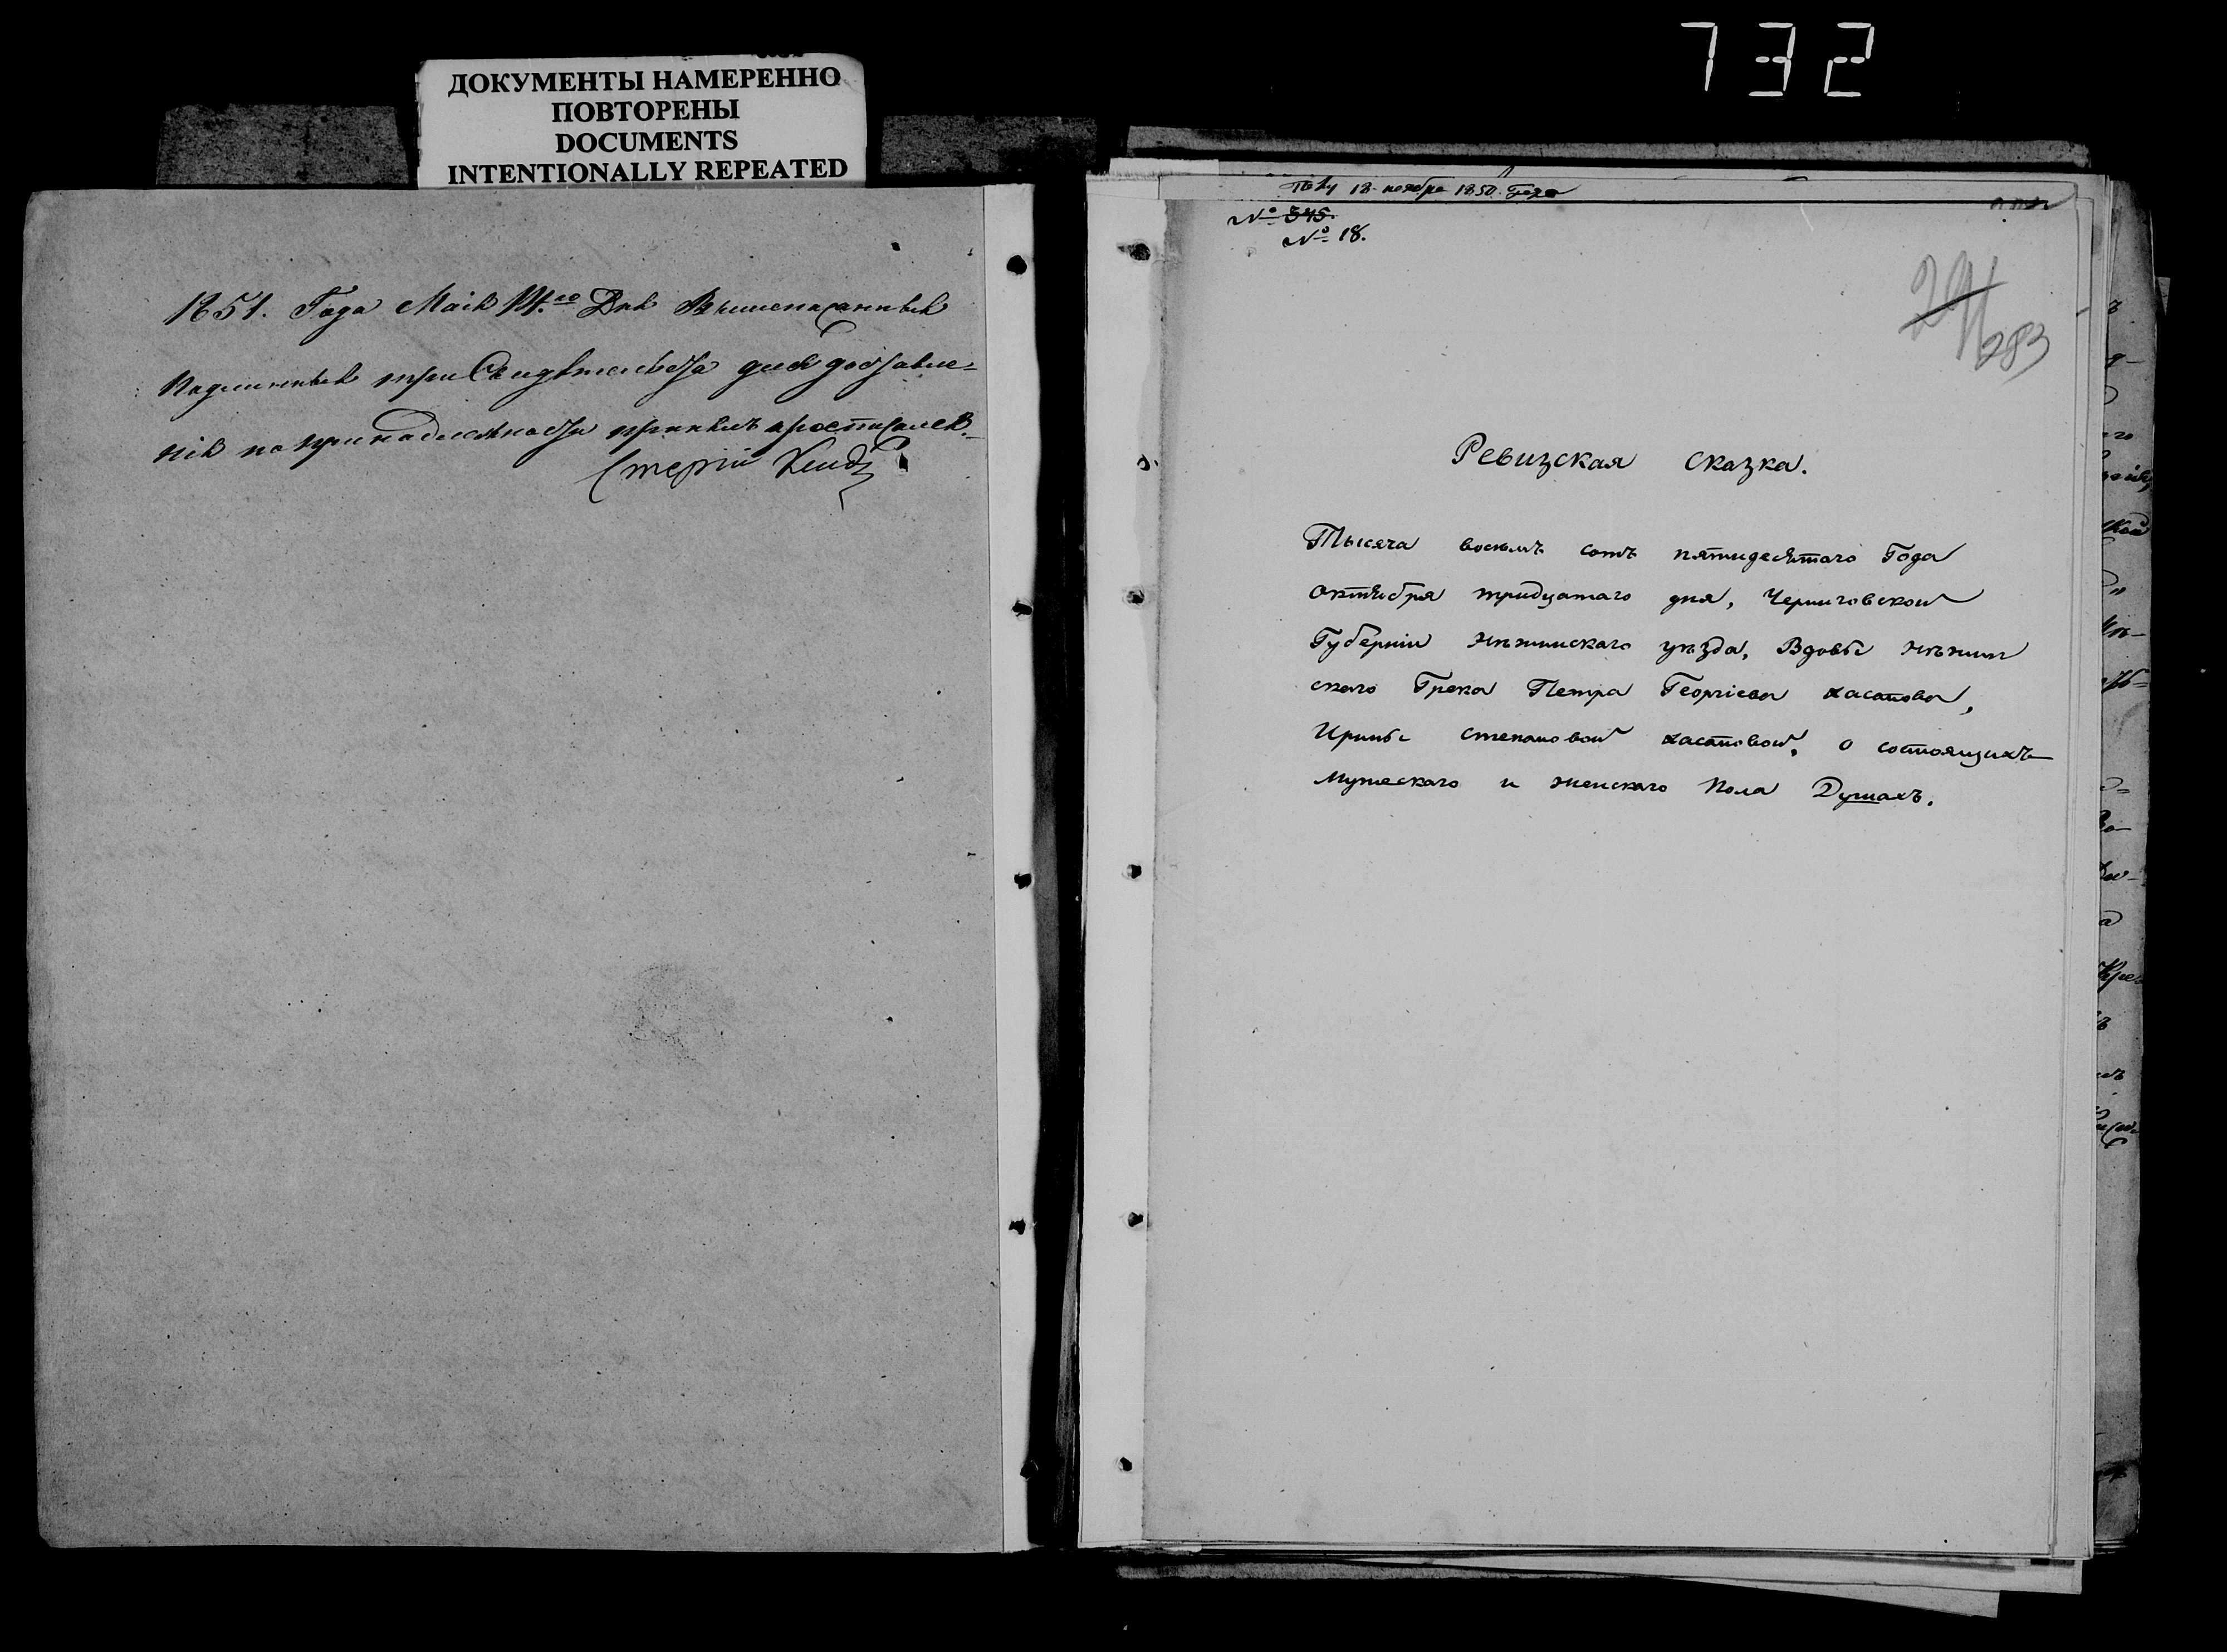 732
ДОКУМЕНТЫ НАМЕРЕННО
ПОВТОРЕНЫ
DOCUMENTS
INTENTIONALLY REPEATED
1851. Года Маія 14.го Дня Вышеписанныя
подлинныя три Свидѣтельства для доставле=
нія по принадлежности принялъ и росписался.
Стерій
18 ноября 1850 Года
№ 345.
№ 18.
291
283
Ревизская сказка.
Тысяча восемь сотъ пятидесятаго Года
октября тридцатаго дня, Черниговской
Губерніи нѣжинскаго уѣзда, Вдовы нѣжин
скаго Грека Петра Георгіева хасапова,
Ирины степановой хасаповой, о состоящихъ
мужескаго и женскаго пола Душахъ.